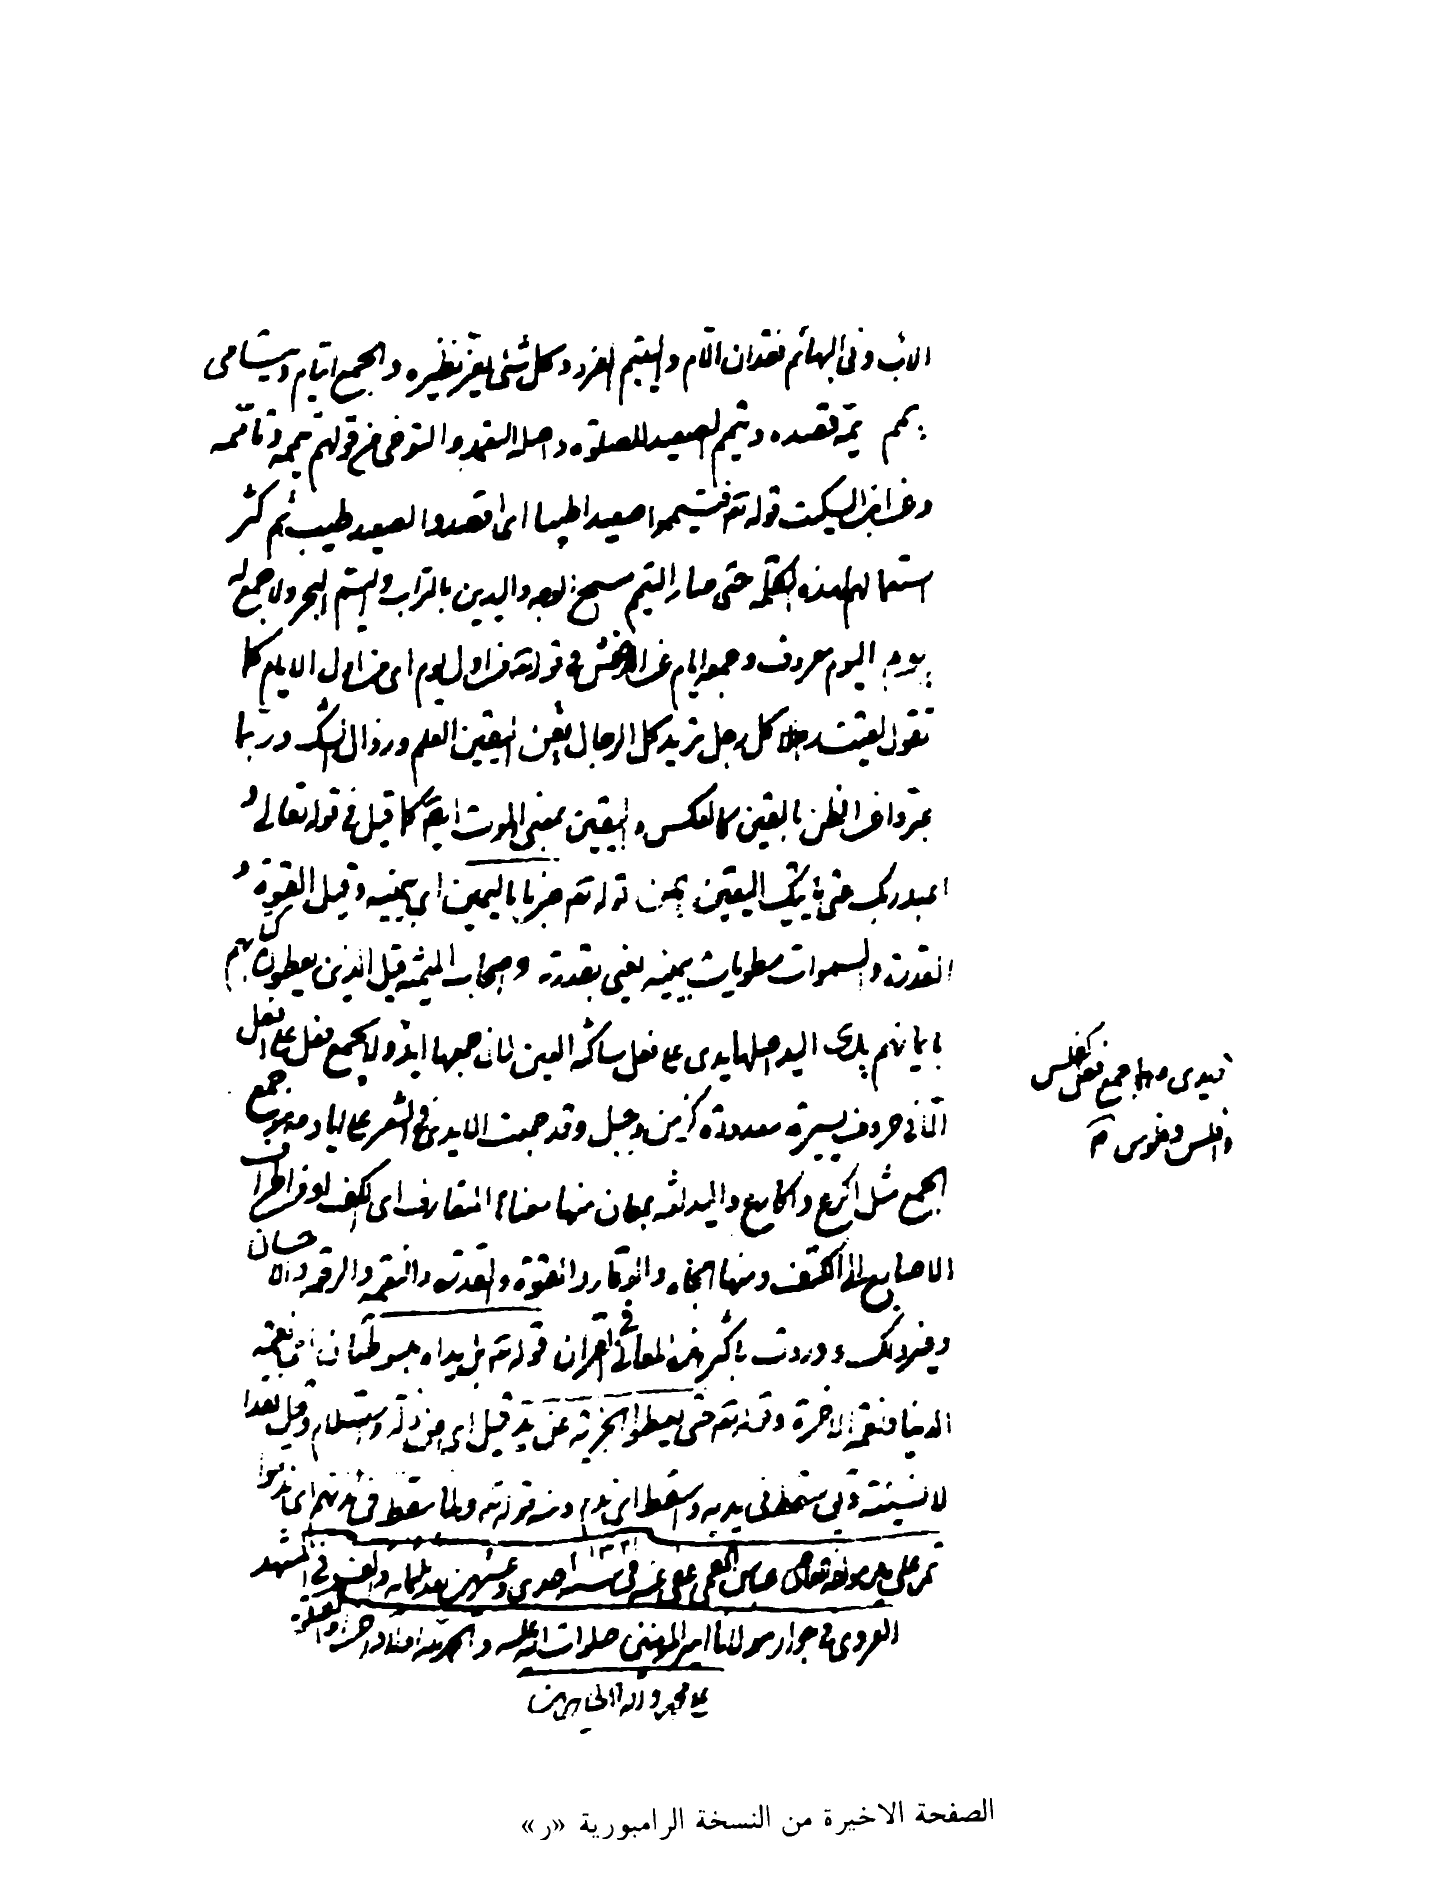 الأب وفى البهائم فقدان الأم واليتيم الفرد وكل شئ يعز نظيره والجمع ايتام ويتامى
يمم يمّه قصده وتيمم الصعيد للصلوة واصله التعمد والتوخى من قولهم تيممه وتأممه
وعن ابن السكيت قوله تع فتيمموا صعيدا طيبا اى اقصدوا لصعيد طيب ثم كثر
استعمالهم لهذه الكلمة حتى صار التيمم مسح الوجه واليدين بالتراب واليم البحر ولا جمع له
يوم اليوم معروف وجمعه ايام عن الاخفش فى قوله تع من اول يوم اى من اول الايام كما
تقول لقيت كل رجل تريد كل الرجال يقن اليقين العلم وزوال الشك وربما
عن الظن باليقين كالعكس واليقين بمعنى الموت ايضا كما قيل فى قوله تعالى و
اعبد ربك حتى يأتيك اليقين يمن قوله تع ضربا باليمين اى بيمينه وقيل القوة و
القدرة والسموات مطويات بيمينه يعنى بقدرته واصحاب الميمنة قيل الذين يعطون كتبهم
بايمانهم يدى اليد اصلها يدى على فعل ساكنة العين لان جمعها ايد ولا يجمع فعل على افعل
الا فى حروف يسيرة معدودة كزمن وجبل وقد جمعت الايدى فى الشعر على اياد جمع
الجمع مثل اكرع واكارع واليد لغة بمعان منها معناه المتعارف اى الكف او من اطراف
الاصابع الى الكتف ومنها الجاه والوقار والقوة والقدرة والنعمة والاحسان
وغير ذلك ووردت باكثر هذه المعانى فى القران قوله تع بل يداه مبسوطتان نعمة
الدنيا ونعمة الاخرة وقوله تع حتى يعطوا الجزية عن يد قيل اى عن ذلة واستسلام وقيل نقدا
لا نسيئة وقيل سقط فى يديه واسقط اى ندم ومنه قوله تع ولما سقط فى ايديهم اى ندموا
تم على يد عباس القمى عفى عنه فى سنة احدى وعشرين بعد ثلثمائة والف فى المشهد
١٣٢١
الغروى فى جوار مولانا امير المؤمنين صلوات الله عليه والحمد لله اولا واخرا والصلوة
على محمد وآله الطاهرين
فيدى وهما جمع فعل كفلس
وافلس وفلوس
الصفحة الاخيرة من النسخة الرامبورية «ر»